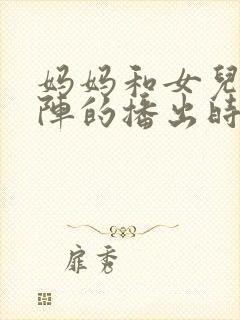 妈妈和女兒
陣的播出時
扉秀